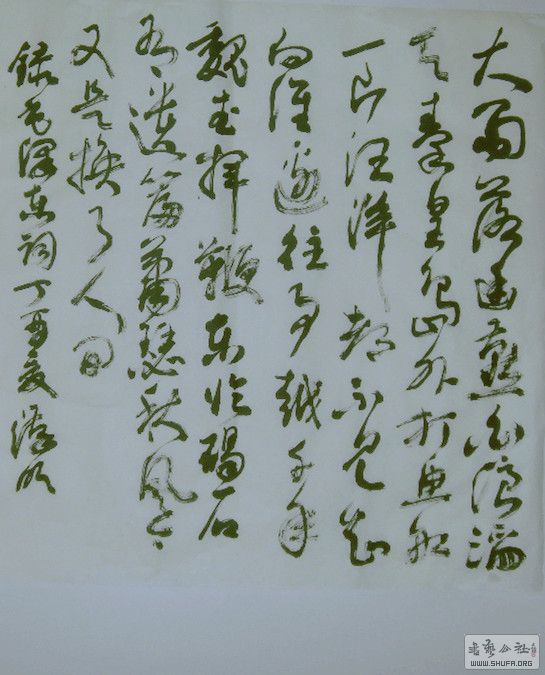 大雨落幽燕白浪滔
天秦皇岛外打鱼船
一片汪洋都不见知
向谁边往事越千年
魏武挥鞭东临碣石
有遗篇萧瑟秋风今
又是换了人间
録毛泽东词丁酉夏
书艺公社
WWW.SHUFA.ORG